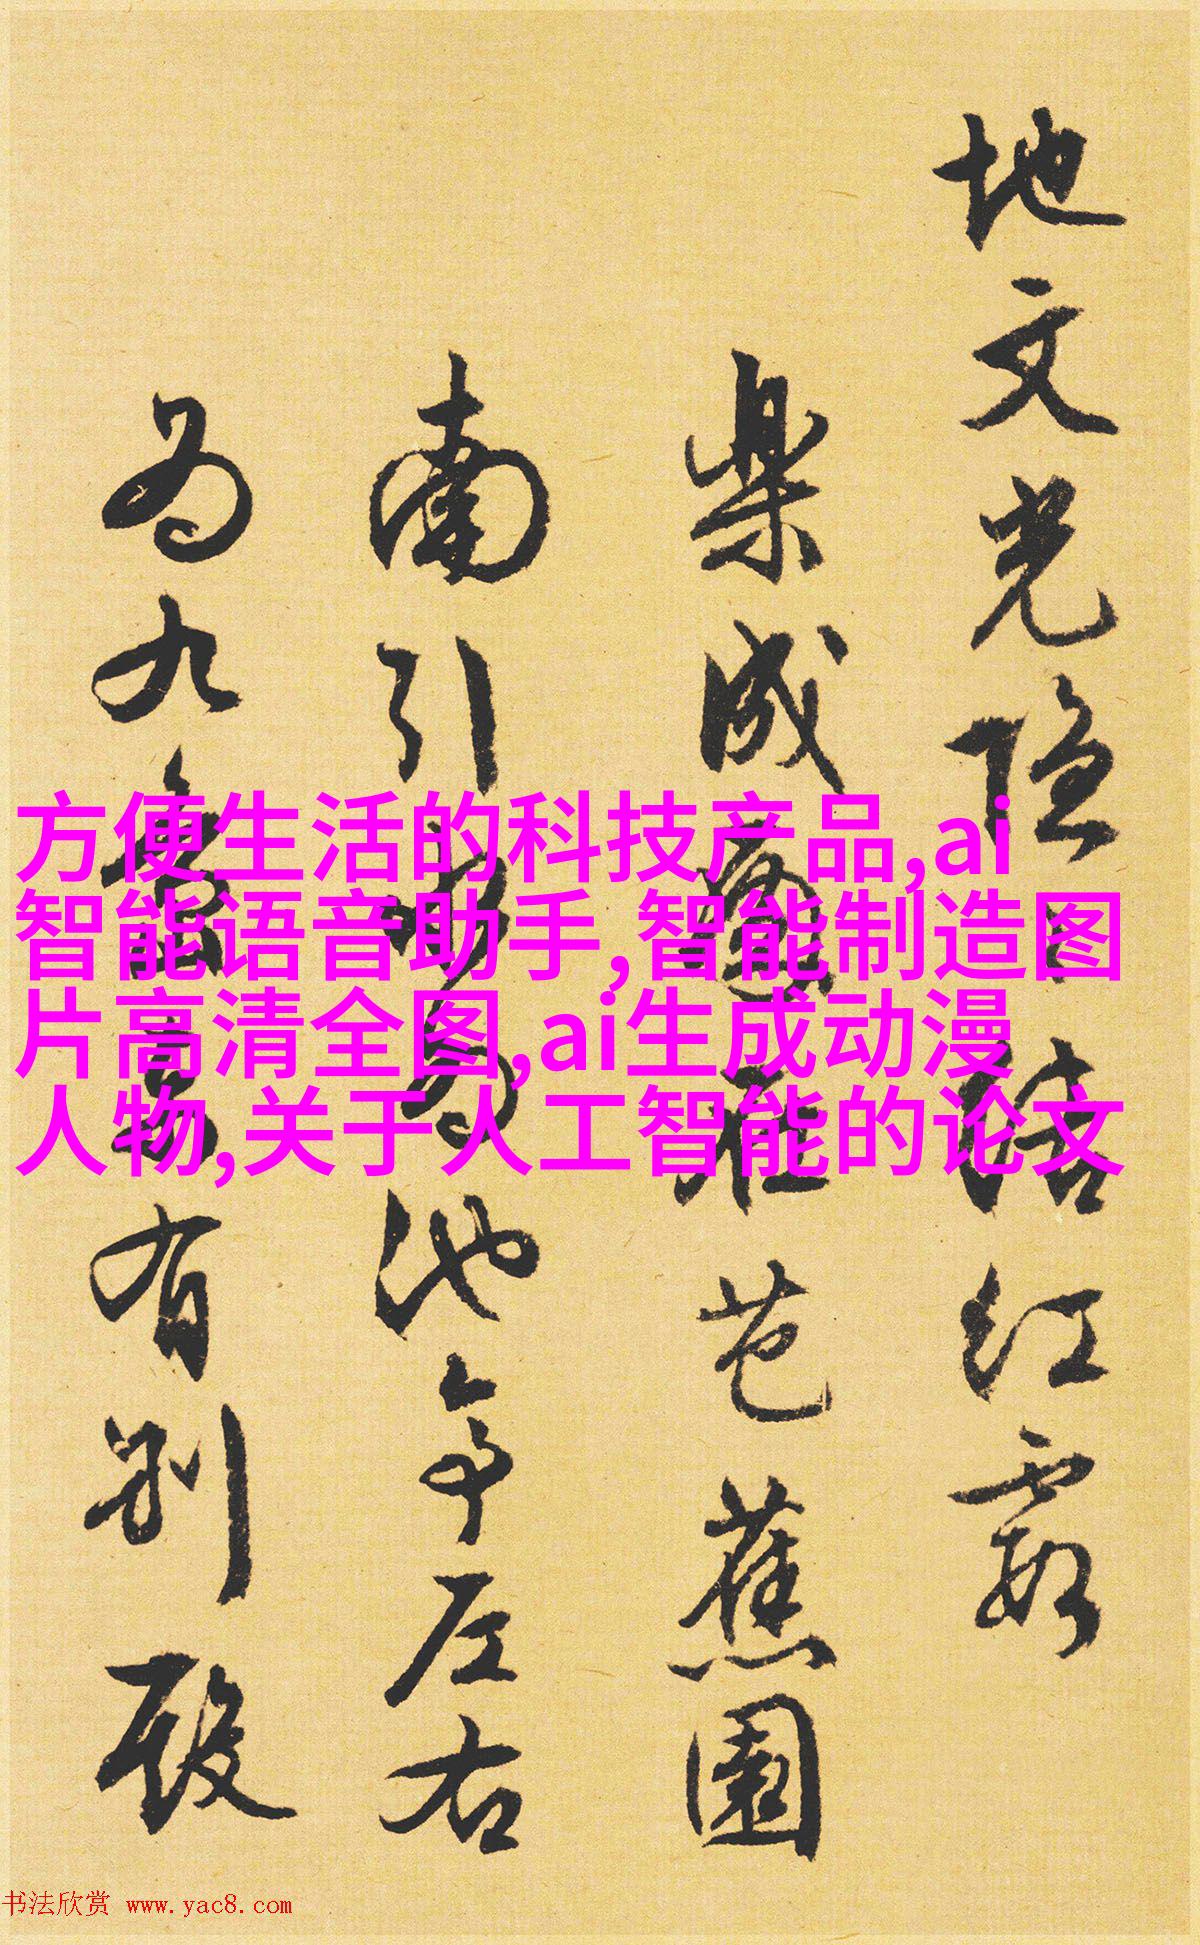 地文光隐
结红霞
樂成
在芭蕉園
南引
為池亭左右
為九
有别殿
方便生活的科技产品,ai
智能语音助手,智能制造图
片高清全图,ai生成动漫
人物,关于人工智能的论文
书法欣赏 www.yac8.com